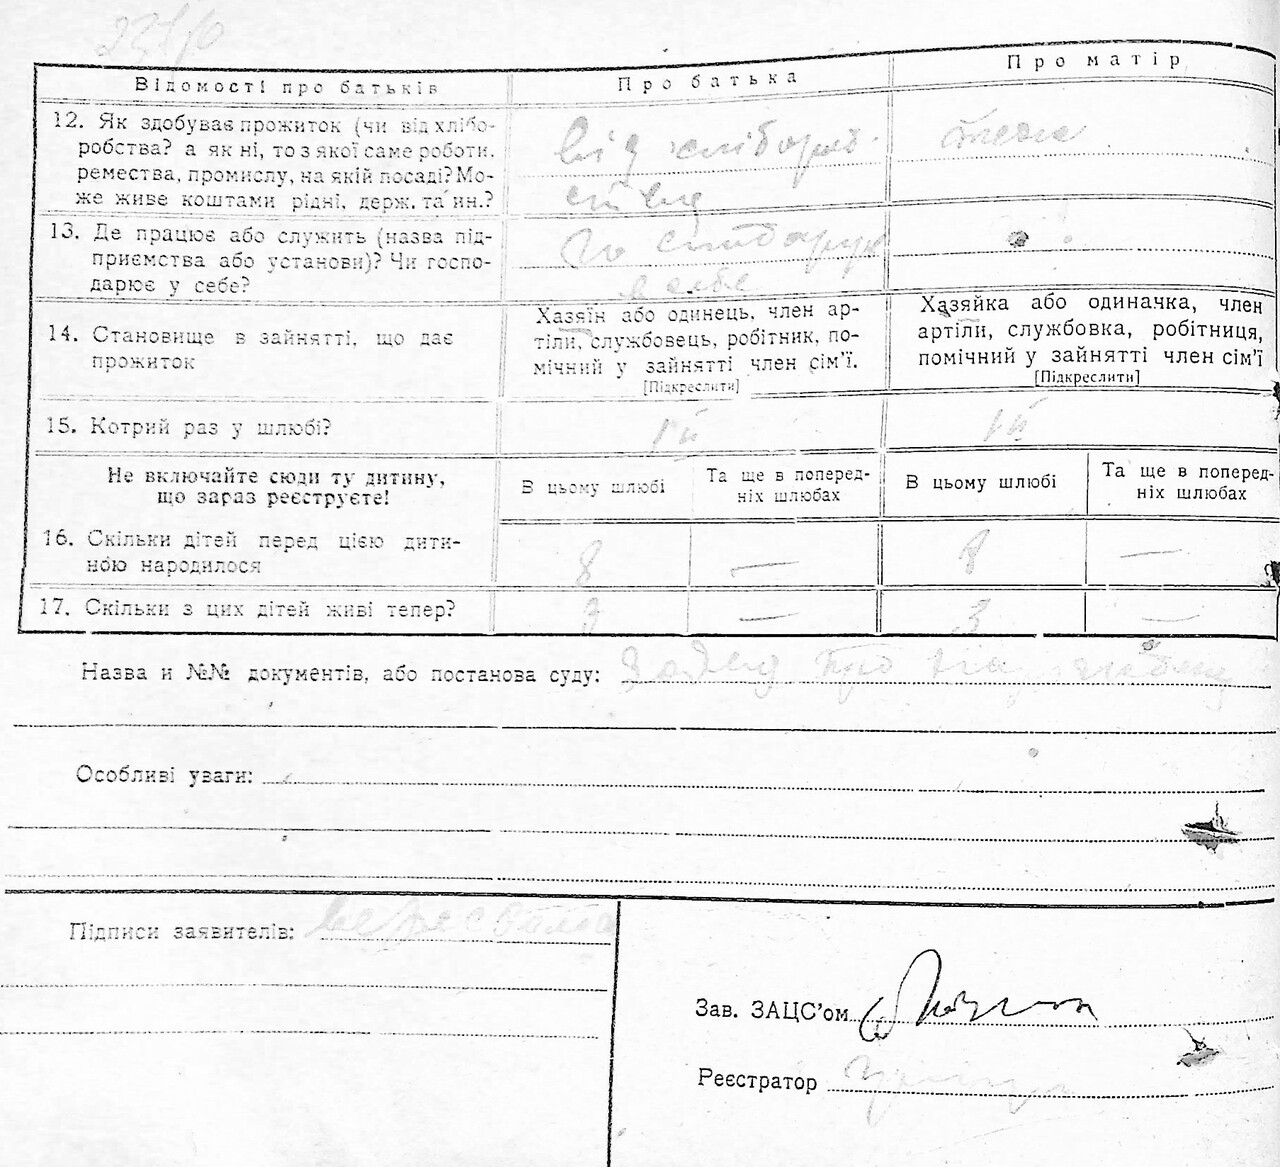 Відомості про батьків
Про батька
Про матір
12. Як здобуває прожиток (чи від хлібо-
робства? а як ні, то з якої саме роботи,
ремества, промислу, на якій посаді? Мо-
же живе коштами рідні, держ. та ин.?
від хлібороб-
ства
13. Де працює або служить (назва під-
приємства або установи)? Чи госпо-
дарює у себе?
в себе
14. Становище в зайнятті, що дає
прожиток
Хазяїн або одинець, член ар-
тіли, службовець, робітник, по-
мічний у зайнятті член сім'ї.
[Підкреслити]
Хазяйка або одиначка, член
артіли, службовка, робітниця,
помічний у зайнятті член сім'ї
[Підкреслити]
15. Котрий раз у шлюбі?
1й
1й
Не включайте сюди ту дитину,
що зараз реєструєте!
В цьому шлюбі
Та ще в поперед-
ніх шлюбах
В цьому шлюбі
Та ще в поперед-
ніх шлюбах
16. Скільки дітей перед цією дити-
ною народилося
8
—
8
—
17. Скільки з цих дітей живі тепер?
3
—
3
—
Назва и №№ документів, або постанова суду:
про
Особливі уваги:
Підписи заявителів:
Зав. ЗАЦС'ом
Реєстратор